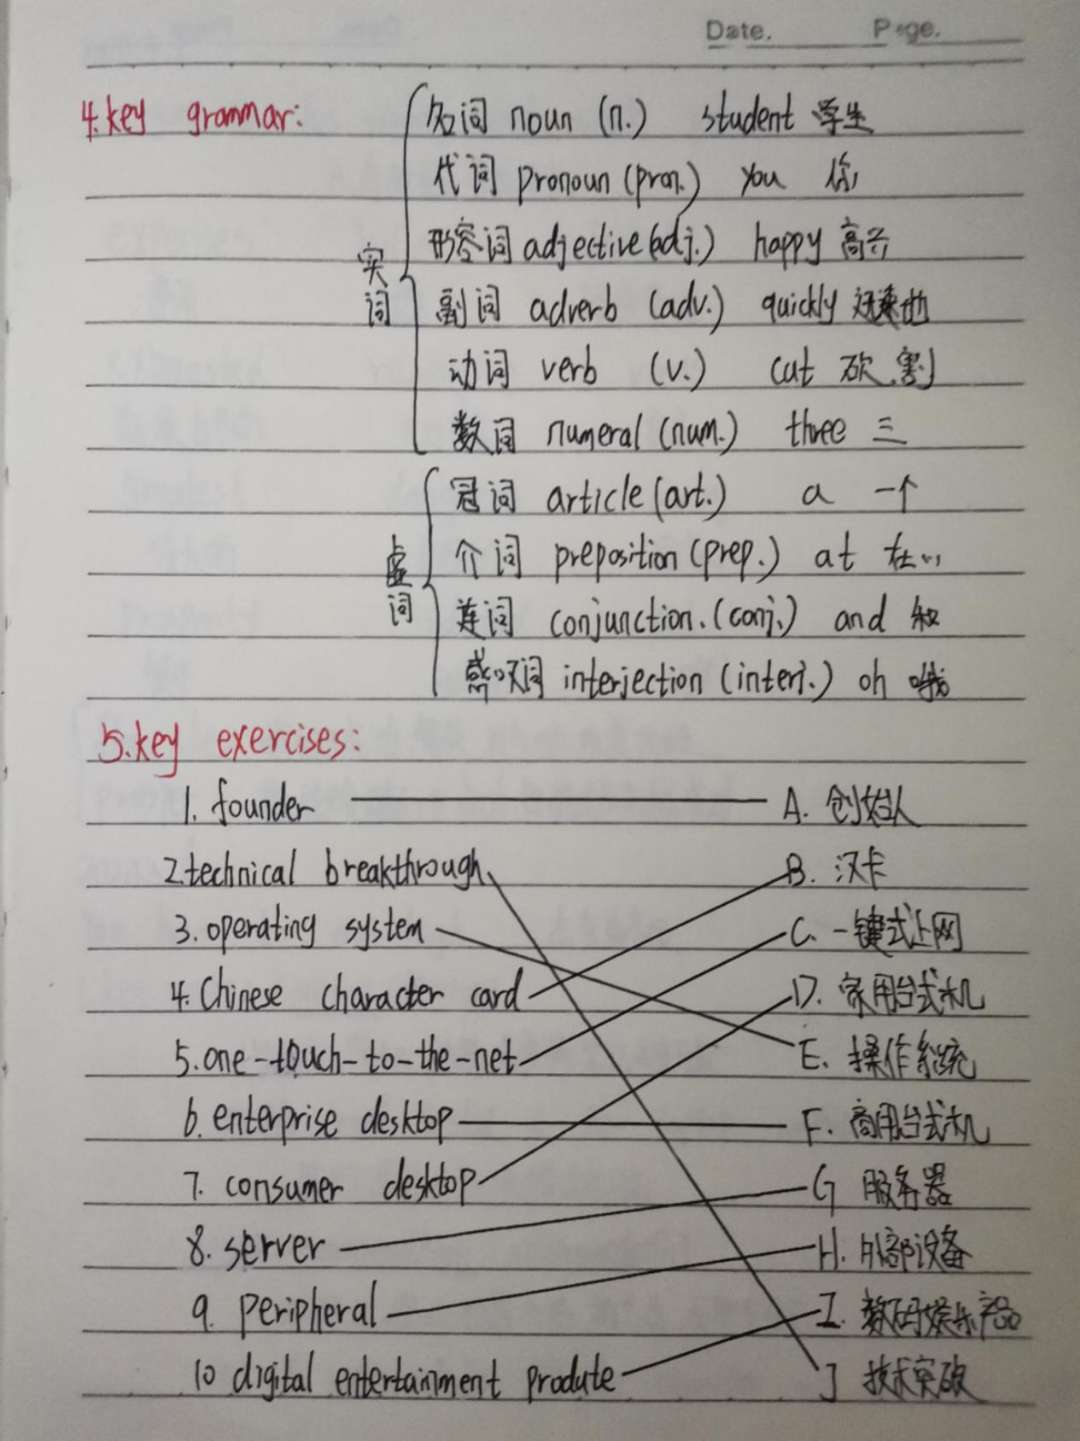 Date. Page.
4. key grammar:
实词
名词 noun (n.) student 学生
代词 pronoun (pron.) you 你
形容词 adjective (adj.) happy 高兴
副词 adverb (adv.) quickly 迅速地
动词 verb (v.) cut 砍、割
数词 numeral (num.) three 三
虚词
冠词 article (art.) a 一个
介词 preposition (prep.) at 在...
连词 conjunction. (conj.) and 和
感叹词 interjection (interj.) oh 哦
5. key exercises:
1. founder A. 创始人
2. technical breakthrough B. 汉卡
3. operating system C. 一键式上网
4. Chinese character card D. 家用台式机
5. one-touch-to-the-net E. 操作系统
6. enterprise desktop F. 商用台式机
7. consumer desktop G 服务器
8. server H. 外部设备
9. peripheral I. 数码娱乐产品
10 digital entertainment produte J 技术突破